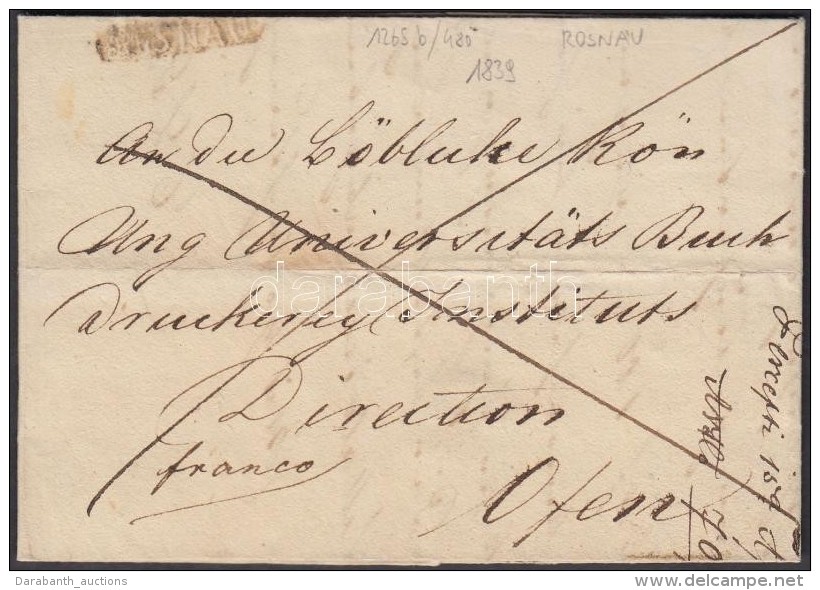 ROSNAU
1265 b/480
ROSNAU
1839
An die Löbliche Kön
Ung Universitäts Buch
druckerey Instituts
Direction
franco
Ofen
darabanth
Darabanth_auctions
www.delcampe.net